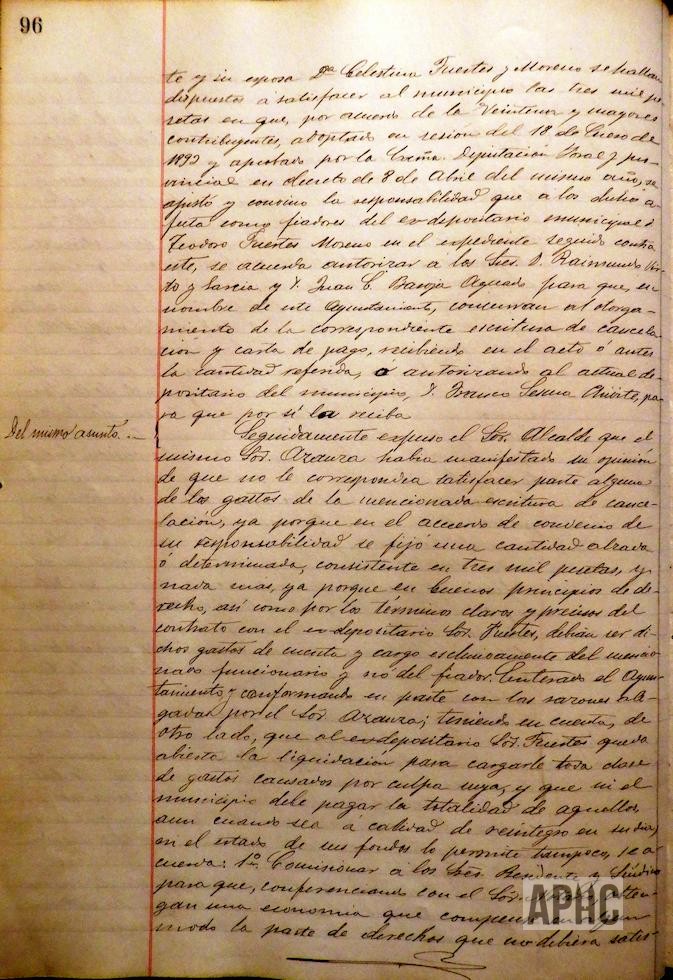 96
te y su esposa Dª Celestina Fuertes y Moreno se hallan
dispuestos á satisfacer al municipio las tres mil pe-
setas en que, por acuerdo de la Veintena y mayores
contribuyentes, adoptado en sesión del 18 de Enero de
1892 y aprobado por la Excma. Diputación foral y pro-
vincial en decreto de 8 de Abril del mismo año, se
ajustó y convino la responsabilidad que á los dichos a-
fecta como fiadores del ex-depositario municipal D.
Teodoro Fuertes Moreno en el expediente seguido contra
este, se acuerda autorizar á los Sres. D. Raimundo
y Garcia y D. Juan C. Baroja Aguado para que, en
nombre de este Ayuntamiento, concurran al otorga-
miento de la correspondiente escritura de cancela-
ción y carta de pago, recibiendo en el acto ó antes
la cantidad referida, ó autorizando al actual de-
positario del municipio, D. Sesma pa-
ra que por sí la reciba
Del mismo asunto. Seguidamente expuso el Sor. Alcalde que el
mismo Sor. Azanza había manifestado su opinión
de que no le correspondia satisfacer parte alguna
de los gastos de la mencionada escritura de cance-
lación, ya porque en el acuerdo de convenio de
su responsabilidad se fijó una cantidad alzada
ó determinada, consistente en tres mil pesetas, y
nada mas, ya porque en buenos principios de de-
recho, así como por los términos claros y precisos del
contrato con el ex-depositario Sor. Fuertes, debian ser di-
chos gastos de cuenta y cargo esclusivamente del mencio-
nado funcionario y nó del fiador. Enterado el Ayun-
tamiento y conformando en parte con las razones ale-
gadas por el Sor. Azanza; teniendo en cuenta, de
otro lado, que al ex-depositario Sor. Fuertes queda
abierta la liquidación para cargarle toda clase
de gastos causados por culpa suya, y que ni el
municipio debe pagar la totalidad de aquellos,
aun cuando sea á calidad de reintegro en su dia,
ni el estado de sus fondos lo permite tampoco, se a-
cuerda: 1º Comisionar á los Sres. Presidente y Síndico
para que, conferenciando con el Sor. obten-
gan una economia que compense en algun
modo la parte de derechos que no debiera satis-
APHC